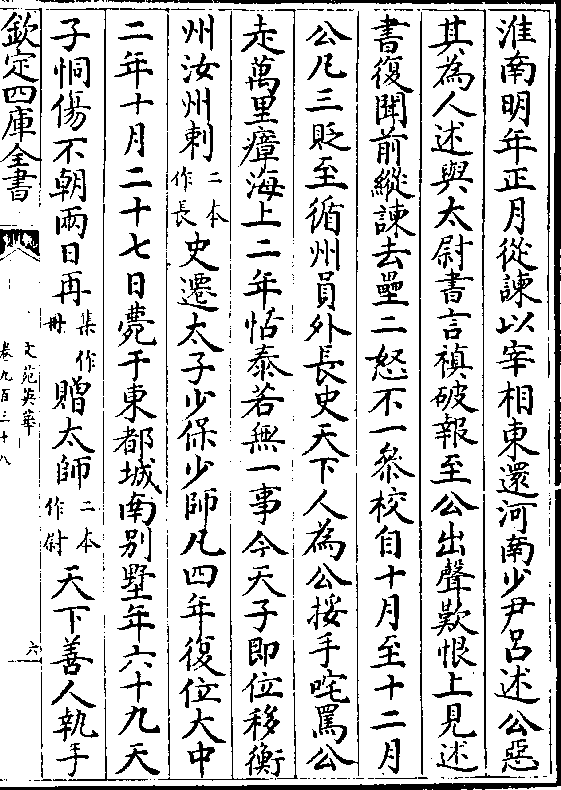 淮南明年正月從諫以宰相東還河南少尹呂述公惡
其為人述與太尉書言稹破報至公出聲歎恨上見述
書復聞前縱諫去疊二怒不一叅校自十月至十二月
公凡三貶至循州員外長史天下人為公挼手咤罵公
走萬里瘴海上二年恬泰若無一事今天子即位移衡
州汝州刺二本作長史遷太子少保少師凡四年復位大中
二年十月二十七日薨于東都城南别墅年六十九天
子恫傷不朝兩日再集作冊贈太師二本作尉天下善人執手
欽定四庫全書
文苑英華
卷九百三十八
六